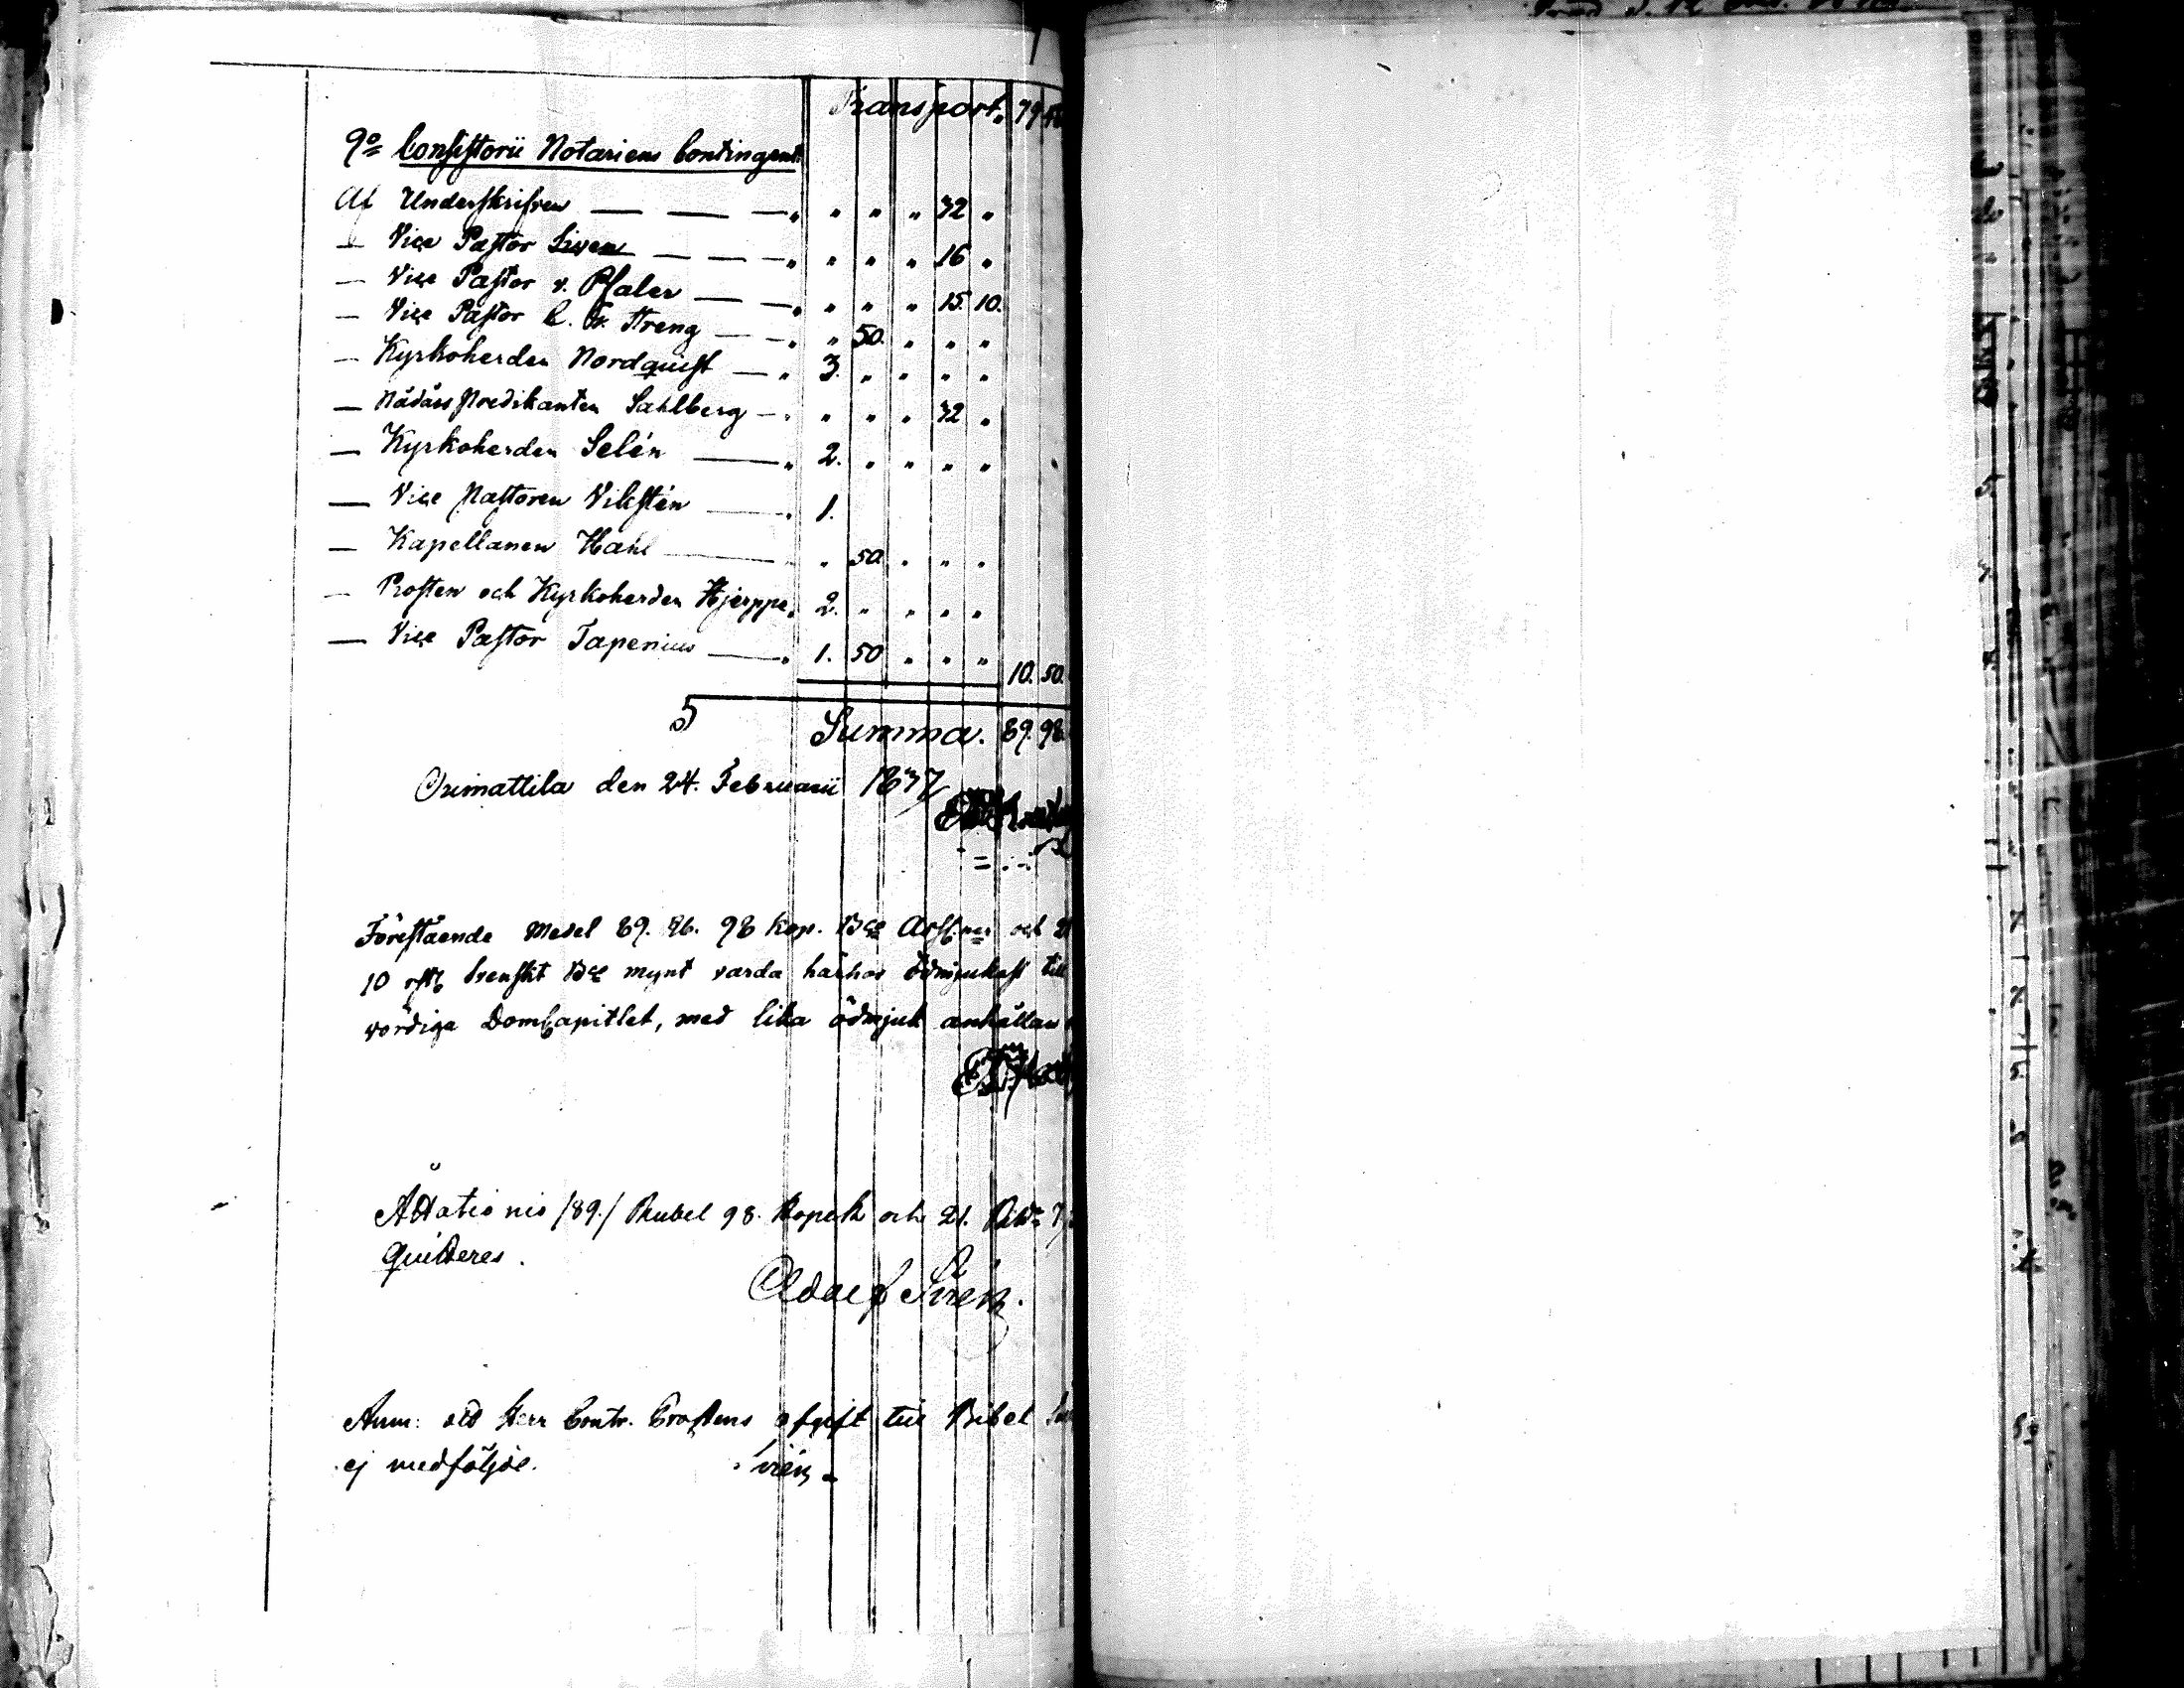 Transport. 79
9o Consistorii Notariens Contingent
Af Underskrifven — — — " " " " 32 "
— Vice Pastor Siven — — — " " " " 16 "
— Vice Pastor v. Pfaler — — " " " " 15. 10.
— Vice Pastor C. G. Streng — — " " 50. " " "
— Kyrkoherden Nordquist — " 3. " " " "
— Nådårs Predikanten Sahlberg — " " " " 32 "
— Kyrkoherden Selén — " 2. " " " "
— Vice Pastoren Vikstén — " 1.
— Kapellanen Hahl — " " 50. " " "
— Prosten och Kyrkoherden Hjerppe " 2. " " " "
— Vice Pastor Tapenius — " 1. 50 " " "
10. 50.
Summa. 89. 98.
Orimattila den 24. Februarii 1837
Förestående medel 89. Rb. 98 kop. Bco Assig:ner och 21
10 rst. Svenskt Bco mynt varda härhos ödmjukast till
vördiga DomCapitlet, med lika ödmjuk anhållan
Åttationio /89./ Rubel 98. Kopek och 21. Rdr
quitteres.
Adolf Sirén.
Anm: att Herr Contr. Prostens afgift till Bibel
ej medföljde. Sirén